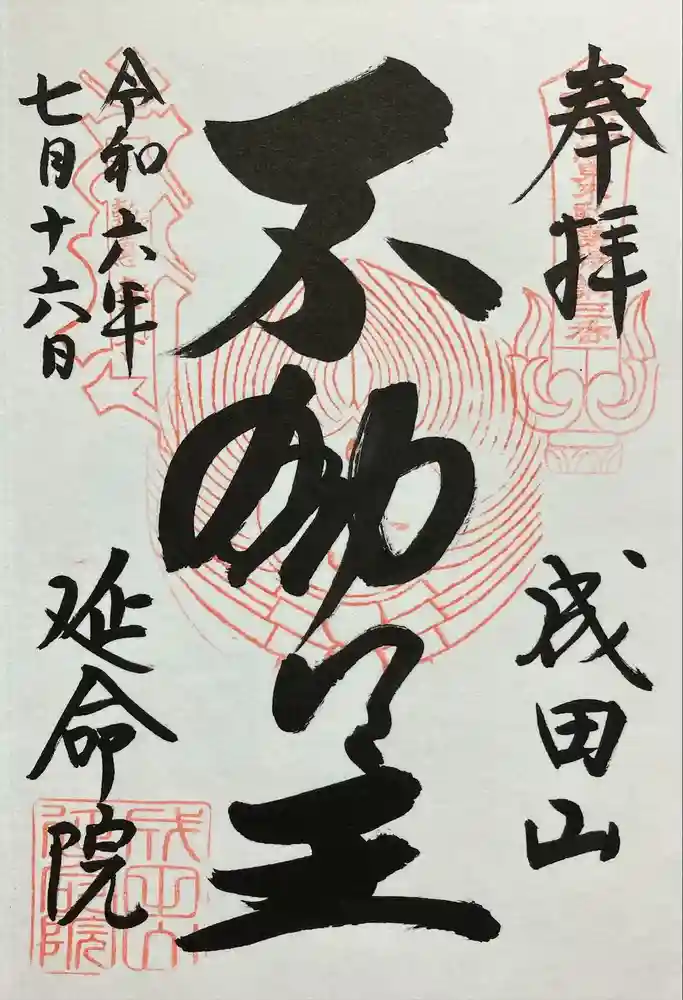 奉拝
成田山
不動明王
令和六年
七月十六日
延命院
成田山
延命院